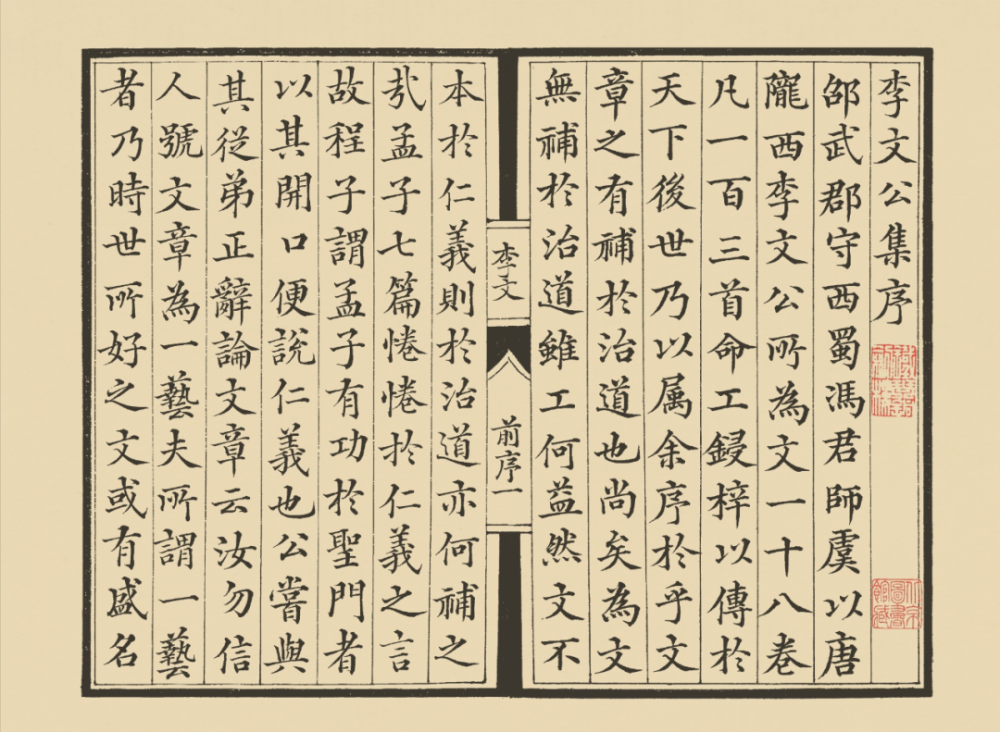 李文公集序
邵武郡守西蜀馮君師虞以唐
隴西李文公所為文一十八卷
凡一百三首命工鋟梓以傳於
天下後世乃以属余序於乎文
章之有補於治道也尚矣為文
無補於治道雖工何益然文不
李文
前序一
本於仁義則於治道亦何補之
㢤孟子七篇惓惓於仁義之言
故程子謂孟子有功於聖門者
以其開口便說仁義也公嘗與
其從弟正辭論文章云汝勿信
人號文章為一藝夫所謂一藝
者乃時世所好之文或有盛名